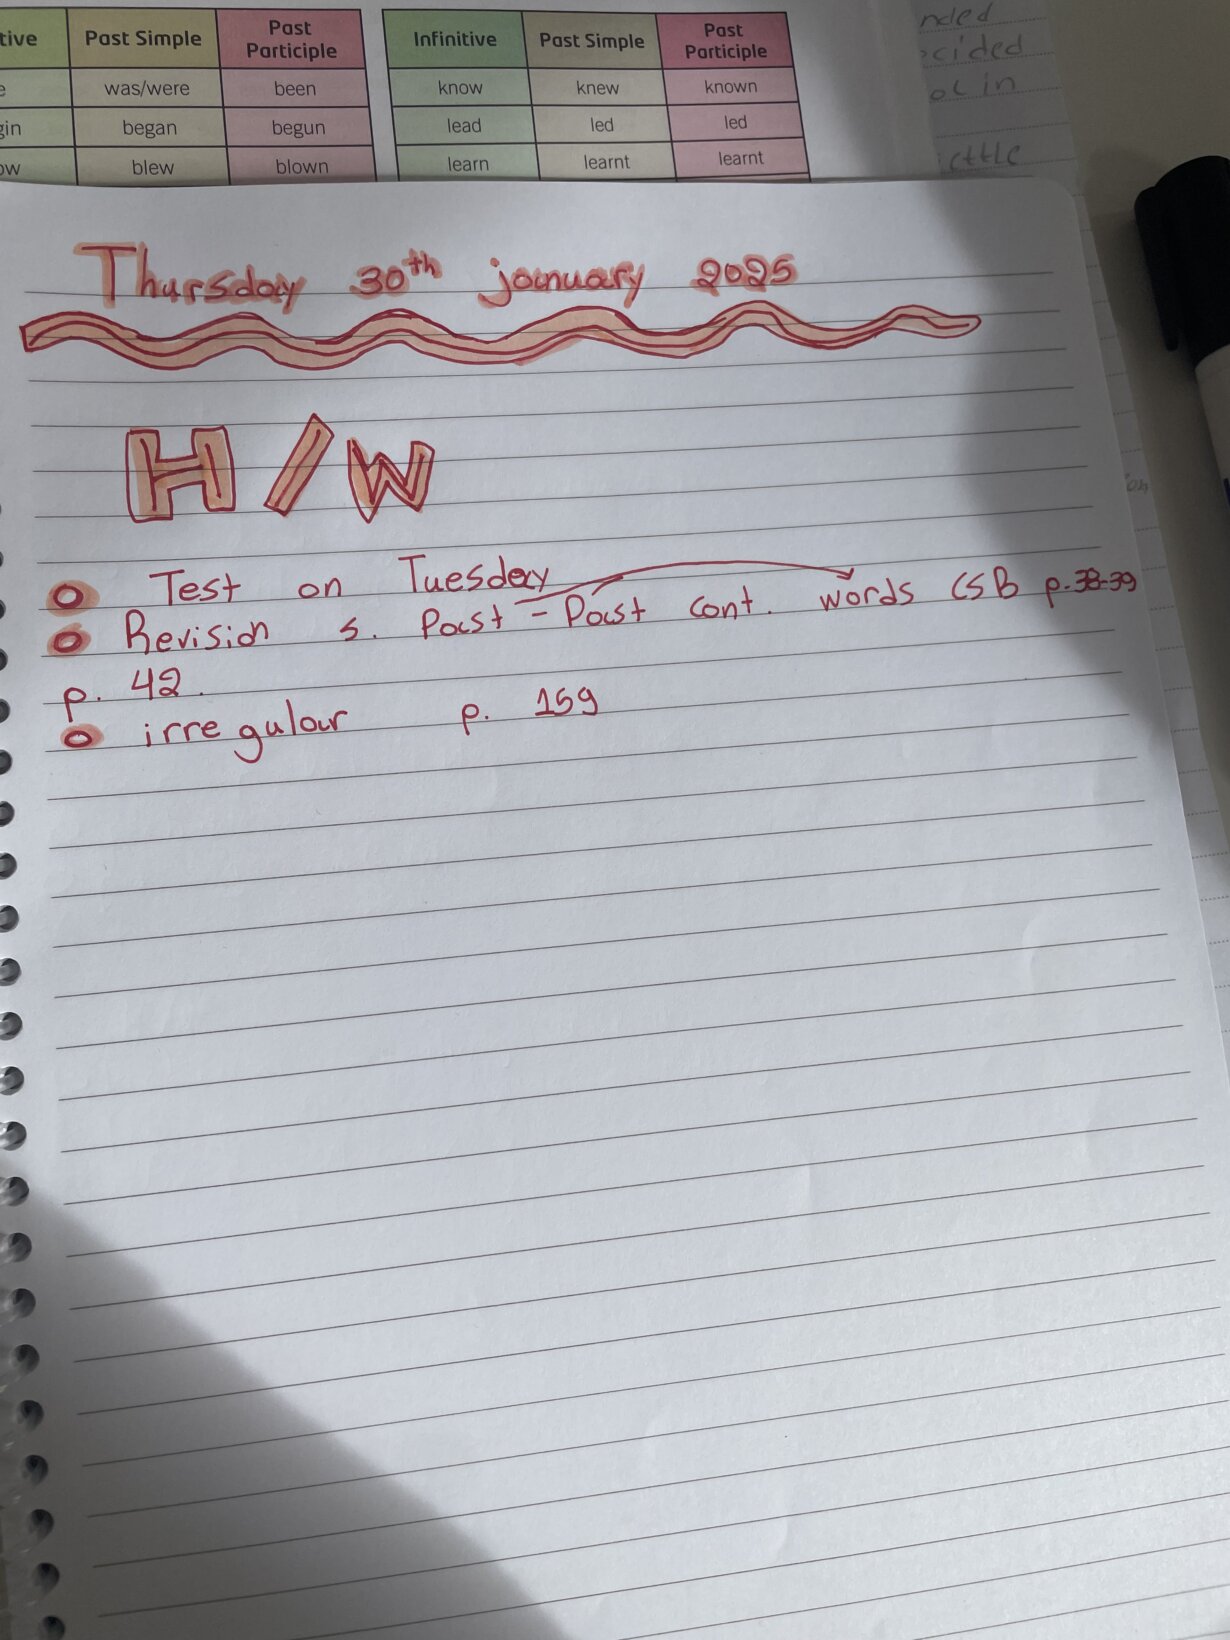 tive Past Simple Past Participle
was/were been
began begun
blew blown
Infinitive Past Simple Past Participle
know knew known
lead led led
learn learnt learnt
Thursday 30th january 2025
H/W
Test on Tuesday
Revision s. Past - Past cont. words CSB p.38-39
p. 42.
irregular p. 159